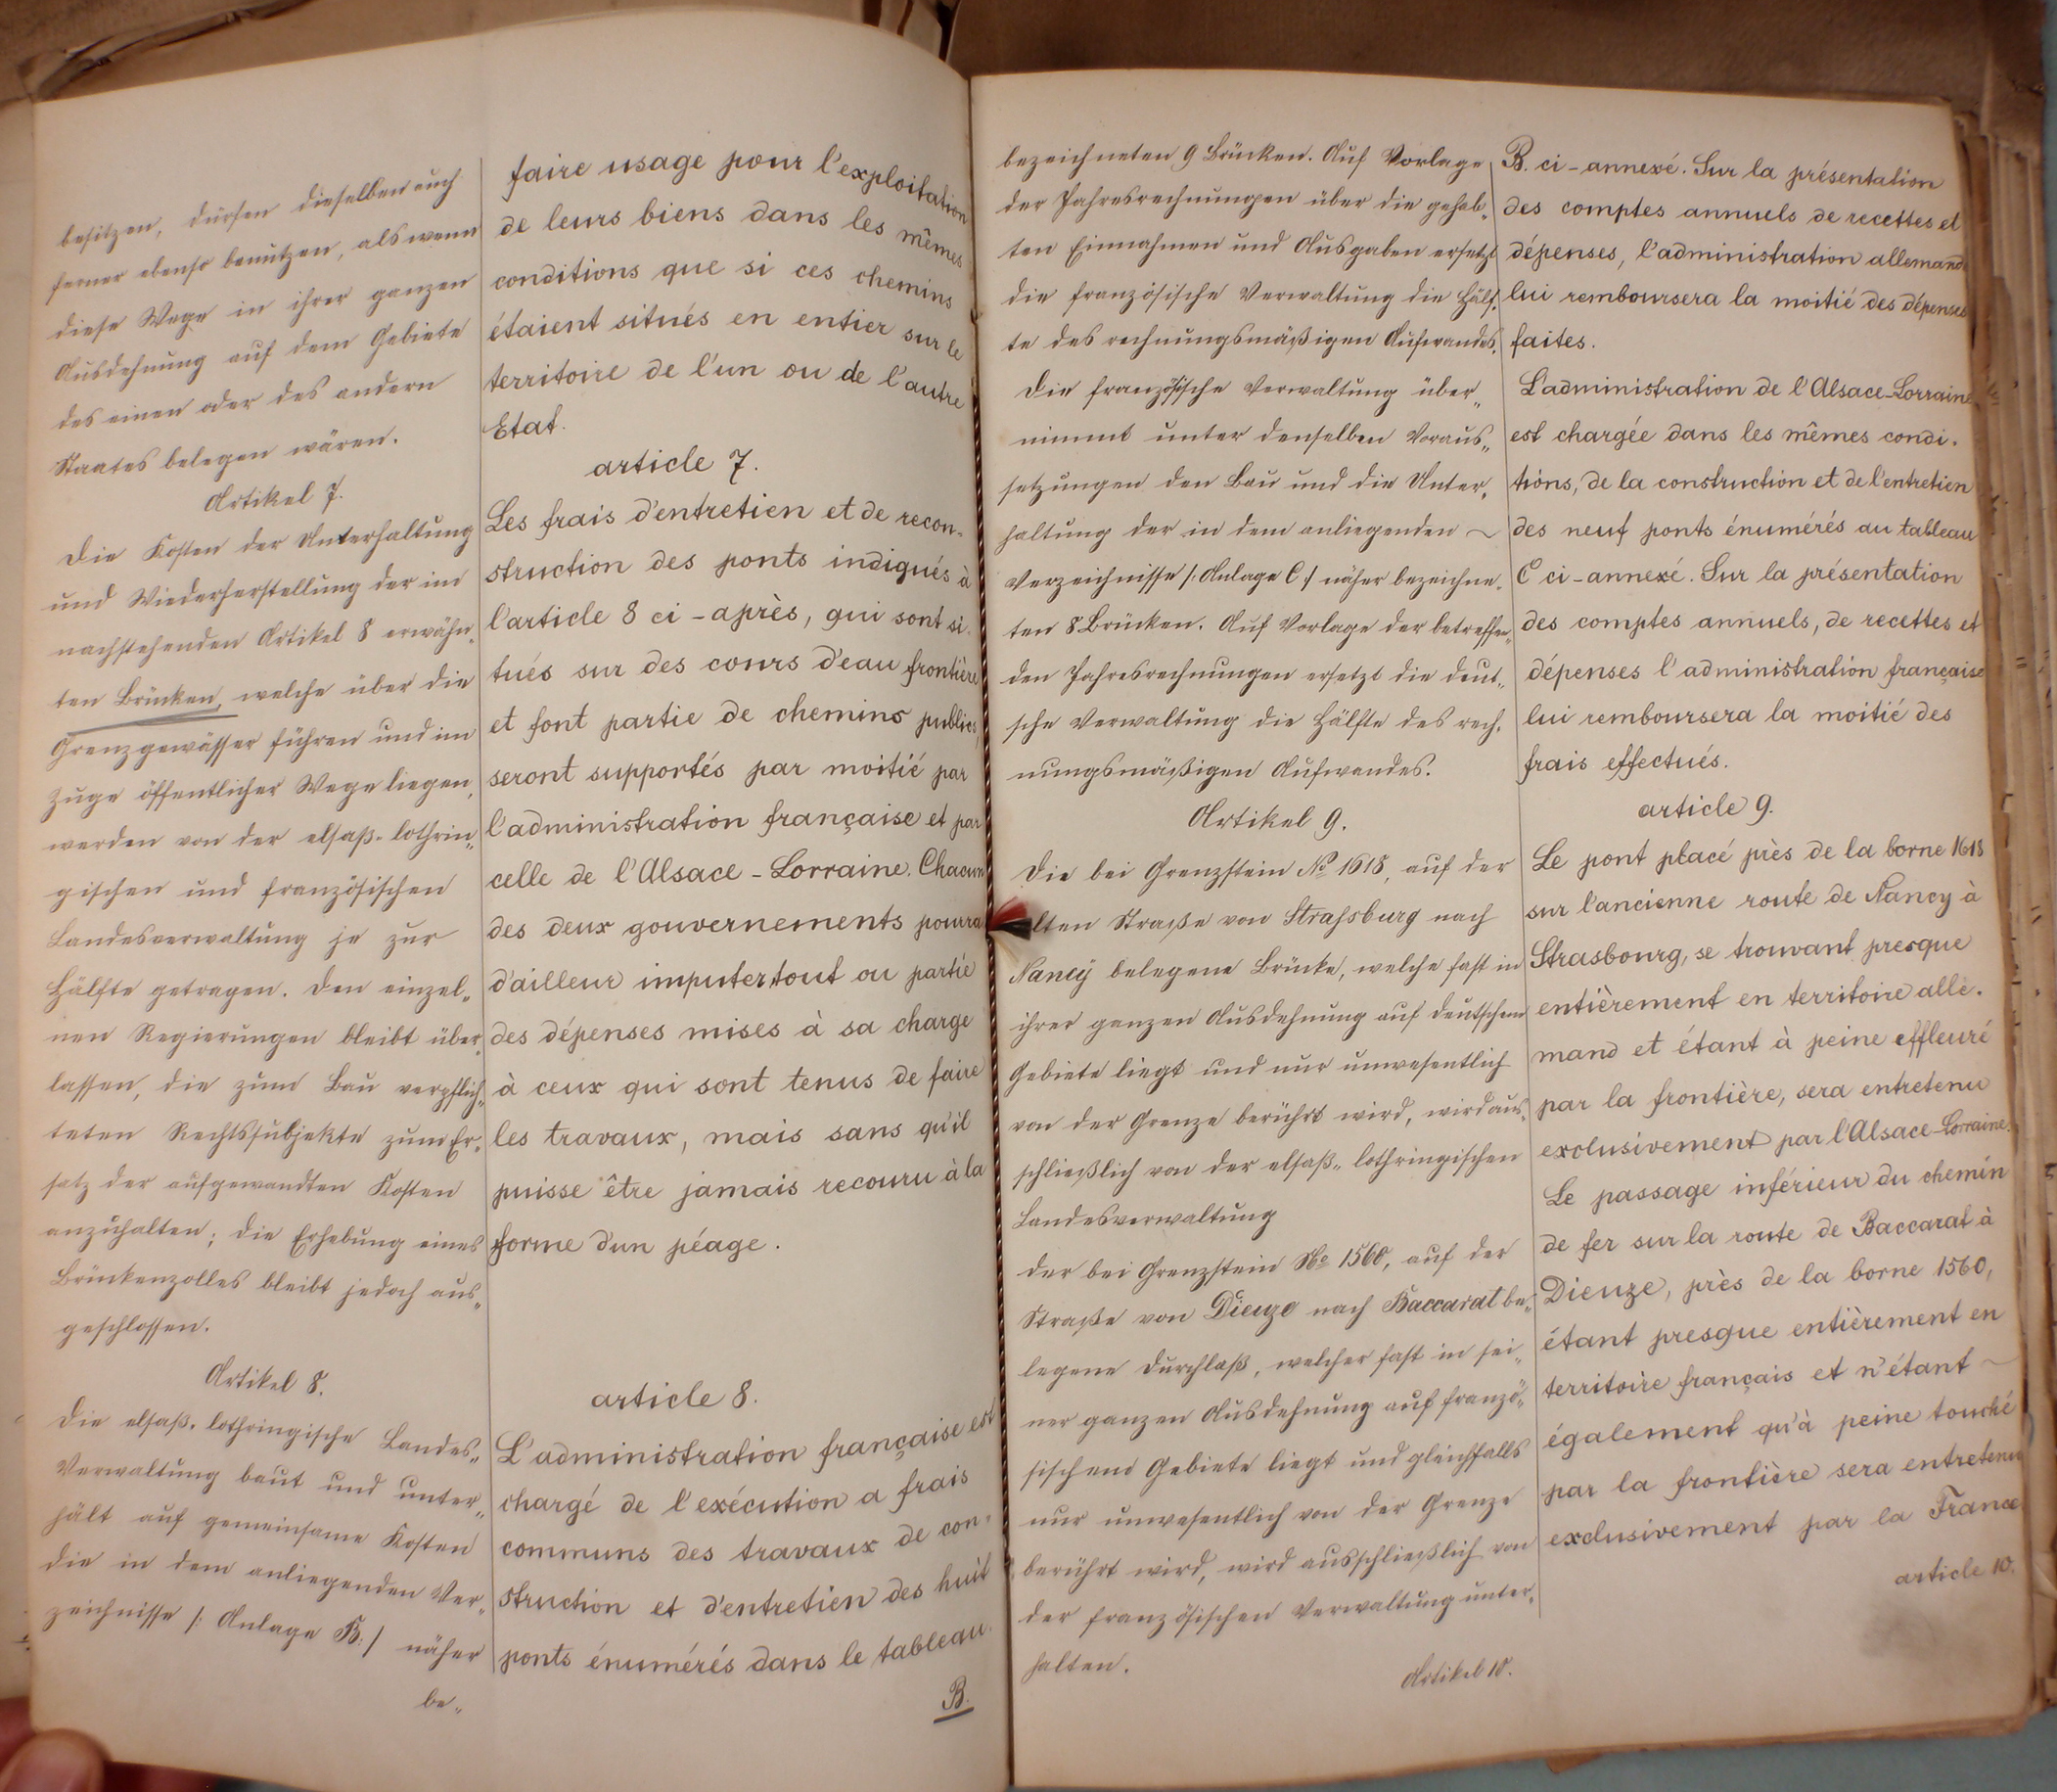 besitzen, dürfen dieselben auch
ferner ebenso benutzen, als wenn
diese Wege in ihrer ganzen
Ausdehnung auf dem Gebiete
des einen oder des andern
Staates belegen wären.
Artikel 7.
Die Kosten der Unterhaltung
und Wiederherstellung der im
nachstehenden Artikel 8 erwähn„
ten Brücken, welche über die
Grenzgewässer führen und im
Zuge öffentlicher Wege liegen,
werden von der elsaß-lothrin„
gischen und französischen
Landesverwaltung je zur
Hälfte getragen. Den einzel„
nen Regierungen bleibt über„
lassen, die zum Bau verpflich„
teten Rechtssubjekte zum Er„
satz der aufgewandten Kosten
anzuhalten; die Erhebung eines
Brückenzolles bleibt jedoch aus„
geschlossen.
Artikel 8.
Die elsaß-lothringische Landes„
Verwaltung baut und unter„
hält auf gemeinsame Kosten
die in dem anliegenden Ver„
zeichnisse /: Anlage B :/ näher
be„
faire usage pour l'exploitation
de leurs biens dans les mêmes
conditions que si ces chemins
étaient situés en entier sur le
territoire de l'un ou de l'autre
Etat.
article 7.
Les frais d'entretien et de recon„
struction des ponts indiqués à
l'article 8 ci-après, qui sont si„
tués sur des cours d'eau frontière
et font partie de chemins publics,
seront supportés par moitié par
l'administration française et par
celle de l'Alsace-Lorraine. Chacun
des deux gouvernements pourra
d'ailleur imputer tout ou partie
des dépenses mises à sa charge
à ceux qui sont tenus de faire
les travaux, mais sans qu'il
puisse être jamais recouru à la
forme d'un péage.
article 8.
L'administration française est
chargé de l'exécution a frais
communs des travaux de con„
struction et d'entretien des huit
ponts énumérés dans le tableau
B.
bezeichneten 9 Brücken. Auf Vorlage
der Jahresrechnungen über die gehab„
ten Einnahmen und Ausgaben ersetzt
die französische Verwaltung die Hälf„
te des rechnungsmäßigen Aufwandes.
Die französische Verwaltung über„
nimmt unter denselben Voraus„
setzungen den Bau und die Unter„
haltung der in dem anliegenden ~
Verzeichnisse /: Anlage C :/ näher bezeichne„
ten 8 Brücken. Auf Vorlage der betreffen„
den Jahresrechnungen ersetzt die deut„
sche Verwaltung die Hälfte des rech„
nungsmäßigen Aufwandes.
Artikel 9.
Die bei Grenzstein No 1618, auf der
alten Straße von Strassburg nach
Nancÿ belegene Brücke, welche fast in
ihrer ganzen Ausdehnung auf deutschem
Gebiete liegt und nur unwesentlich
von der Grenze berührt wird, wird aus„
schließlich von der elsaß-lothringischen
Landesverwaltung
der bei Grenzstein No 1560, auf der
Straße von Dieuze nach Baccarat be„
legene Durchlaß, welcher fast in sei„
ner ganzen Ausdehnung auf franzö„
sischem Gebiete liegt und gleichfalls
nur unwesentlich von der Grenze
berührt wird, wird ausschließlich von
der französischen Verwaltung unter„
halten.
Artikel 10.
B. ci-annexé. Sur la présentation
des comptes annuels de recettes et
dépenses, l'administration allemande
lui remboursera la moitié des dépenses
faites.
L'administration de l'Alsace-Lorraine
est chargée dans les mêmes condi„
tions, de la construction et de l'entretien
des neuf ponts énumérés au tableau
C ci-annexé. Sur la présentation
des comptes annuels, de recettes et
dépenses l'administration française
lui remboursera la moitié des
frais effectués.
article 9.
Le pont placé près de la borne 1618
sur l'ancienne route de Nancy à
Strasbourg, se trouvant presque
entièrement en territoire alle„
mand et étant à peine effleuré
par la frontière, sera entretenu
exclusivement par l'Alsace-Lorraine.
Le passage inférieur du chemin
de fer sur la route de Baccarat à
Dieuze, près de la borne 1560,
étant presque entièrement en
territoire français et n'étant ~
également qu'à peine touché
par la frontière sera entretenu
exclusivement par la France
article 10.